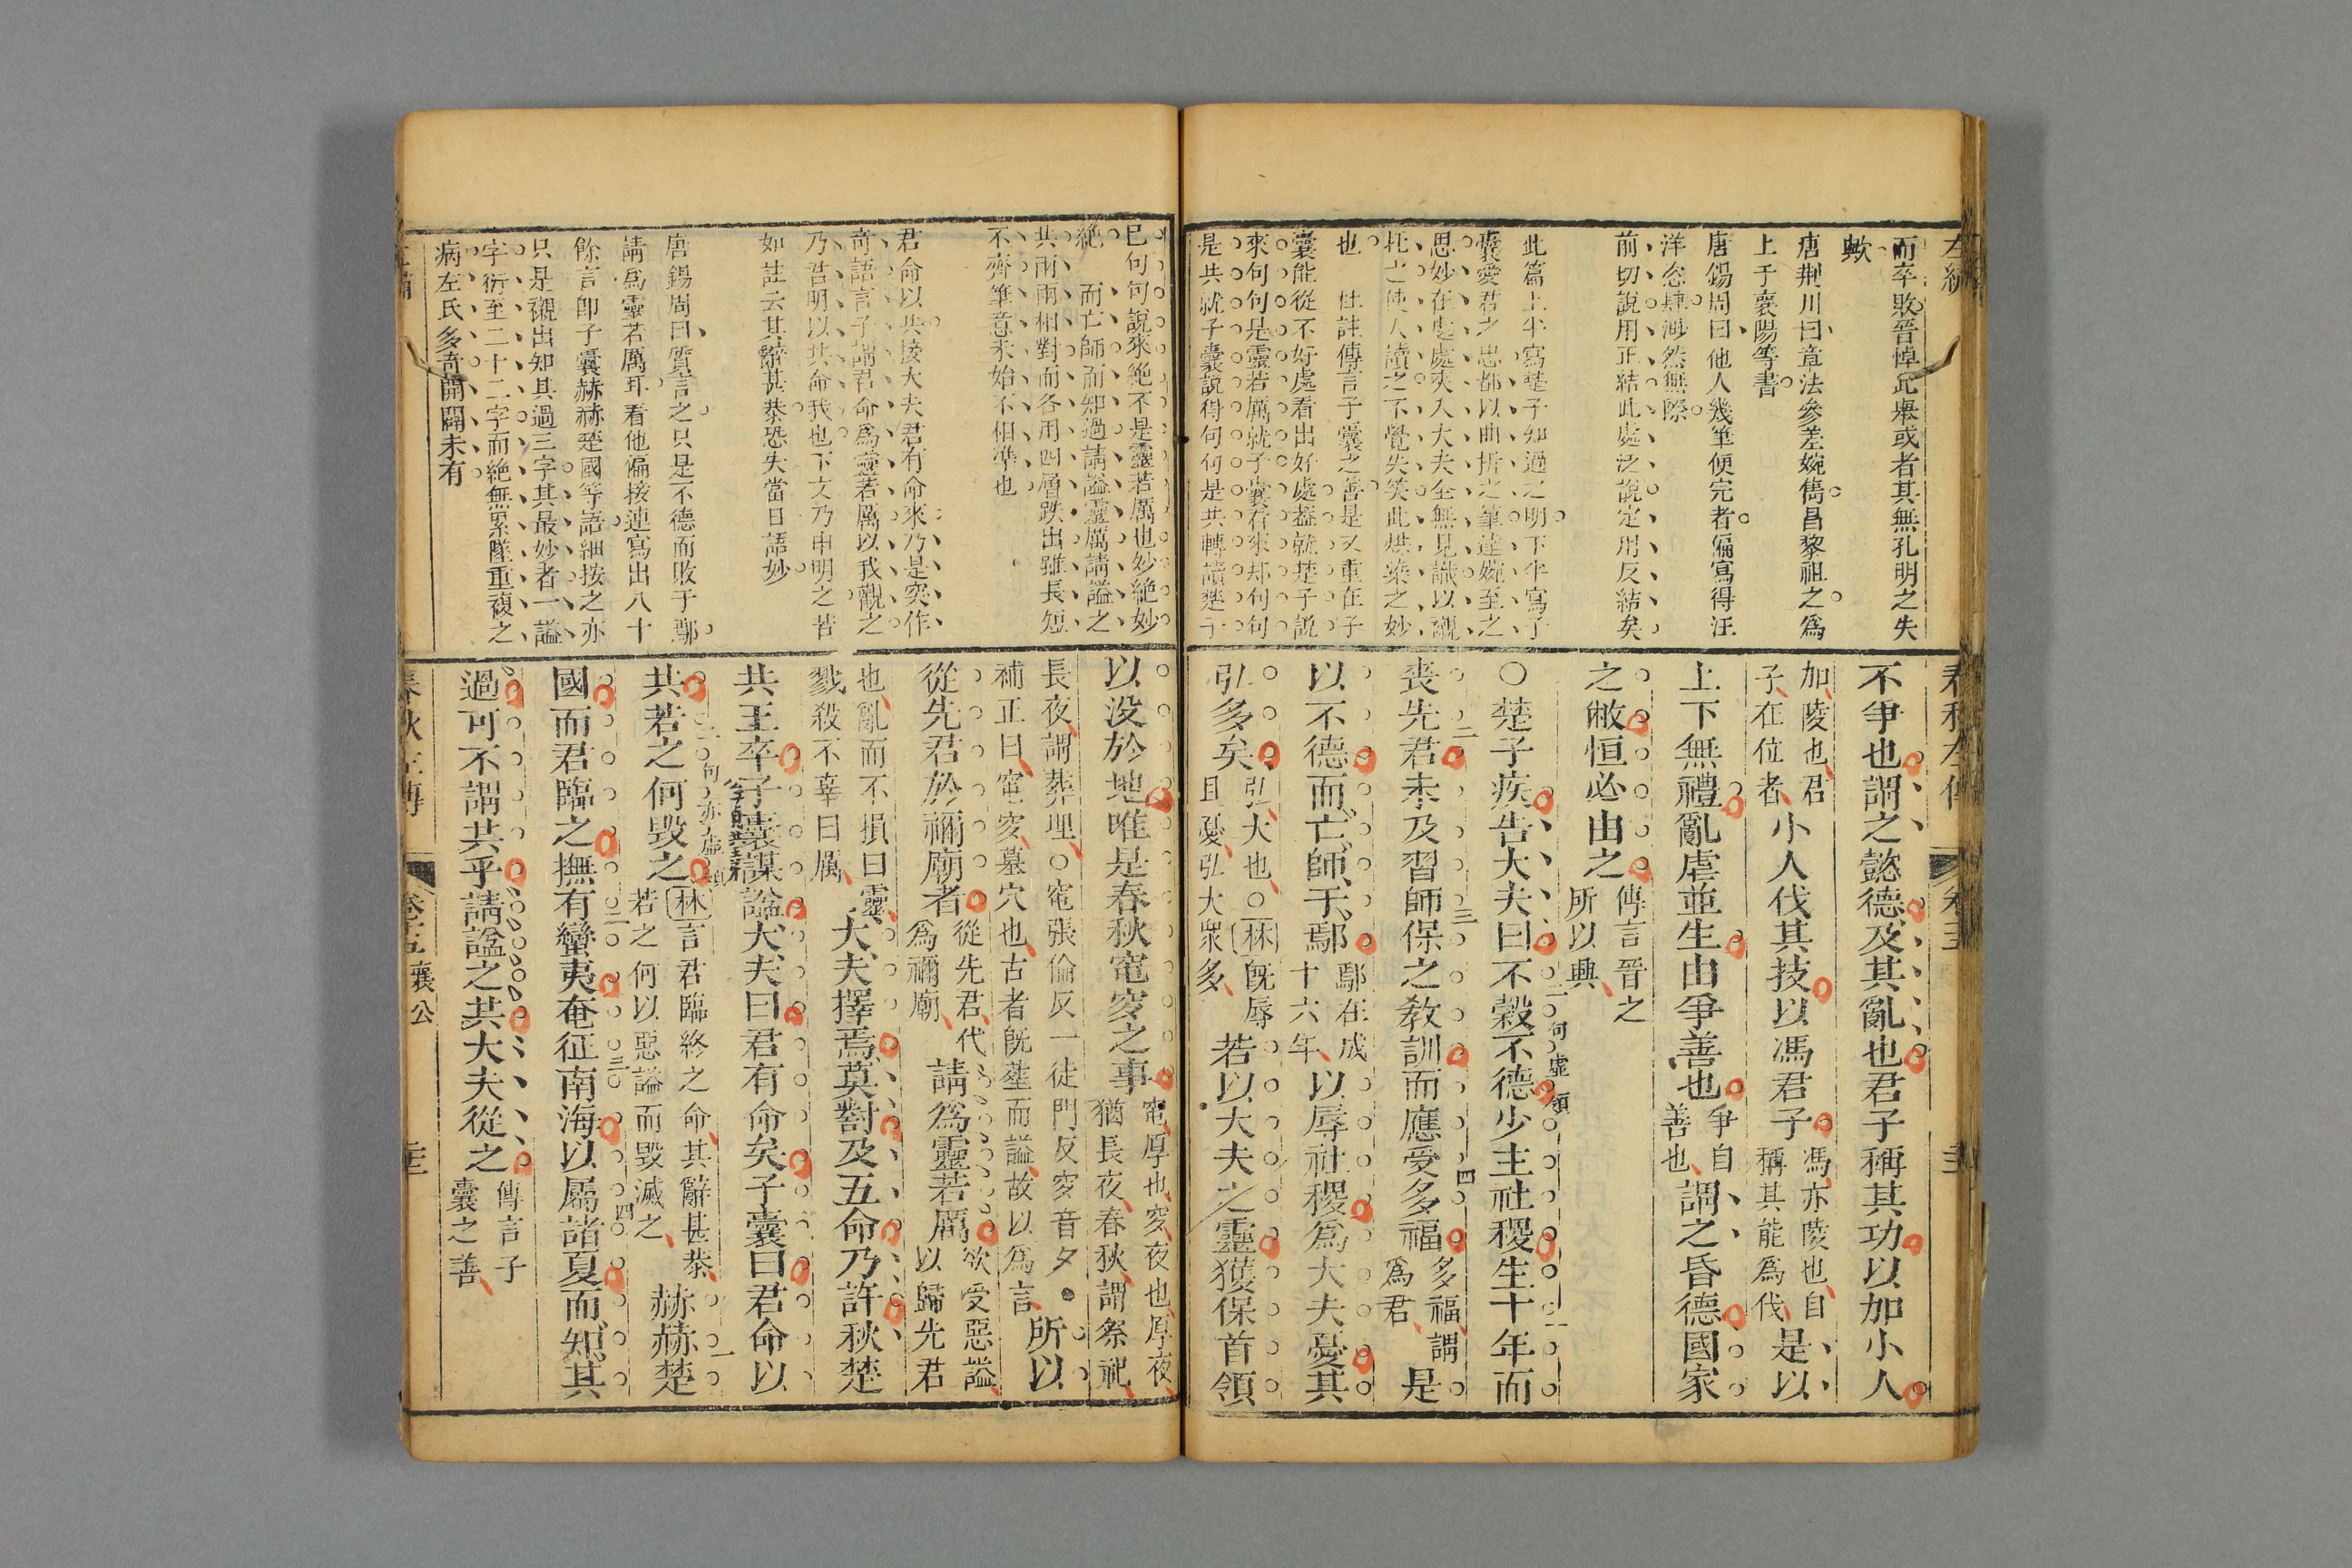 左繡
而卒敗晉悼此舉或者其無孔明之失
歟
唐荆川曰章法參差婉雋昌黎祖之為
上于襄陽等書
唐錫周曰他人幾筆便完者偏寫得汪
洋恣肆渺然無際
前切說用正結此處泛說定用反結矣
此篇上半寫楚子知過之明下半寫子
囊愛君之忠都以曲折之筆達婉至之
思妙在處處夾入大夫全無見識以襯
托之使人讀之不覺失笑此烘染之妙
也 杜註傳言子囊之善是又重在子
囊能從不好處看出好處蓋就楚子說
來句句是靈若厲就子囊看來却句句
是共就子囊說得句句是共轉讀楚子
春秋左傳
不爭也謂之懿德及其亂也君子稱其功以加小人
加陵也君
子在位者
小人伐其技以馮君子
馮亦陵也自
稱其能為伐
是以
上下無禮亂虐並生由爭善也
爭自
善也
謂之昏德國家
之敝恒必由之
傳言晉之
所以興
○楚子疾告大夫曰不穀不德少主社稷生十年而
二句虛領
喪先君未及習師保之教訓而應受多福
多福謂
為君
是
以不德而亡師于鄢
鄢在成
十六年
以辱社稷為大夫憂其
弘多矣
弘大也○林既辱
且憂弘大眾多
若以大夫之靈獲保首領
已句句說來絕不是靈若厲也妙絕妙
絕 而亡師而知過請謚靈厲請謚之
共兩兩相對而各用四層跌出雖長短
不齊筆意未始不相準也
君命以共接大夫君有命來乃是突作
奇語言子謂君命為靈若厲以我觀之
乃君明以共命我也下文乃申明之若
如註云其辭甚恭恐失當日語妙
唐錫周曰質言之只是不德而敗于鄢
請為靈若厲耳看他偏接連寫出八十
餘言卽子囊赫赫楚國等語細按之亦
只是襯出知其過三字其最妙者一謚
字衍至二十二字而絕無累墜重複之
病左氏多奇開闢未有
以没於地唯是春秋窀穸之事
窀厚也穸夜也厚夜
猶長夜春秋謂祭祀
長夜謂葬埋○窀張倫反一徒門反穸音夕●
補正曰窀穸墓穴也古者既葬而謚故以為言
所以
從先君於禰廟者
從先君代
為禰廟
請為靈若厲
欲受惡謚
以歸先君
也亂而不損曰靈
戮殺不辜曰厲
大夫擇焉莫對及五命乃許秋楚
共王卒子囊謀謚大夫曰君有命矣子囊曰君命以
共若之何毀之
句亦虛領
林言君臨終之命其辭甚恭
若之何以惡謚而毀滅之
赫赫楚
國而君臨之撫有蠻夷奄征南海以屬諸夏而知其
過可不謂共乎請謚之共大夫從之
傳言子
囊之善
襄公